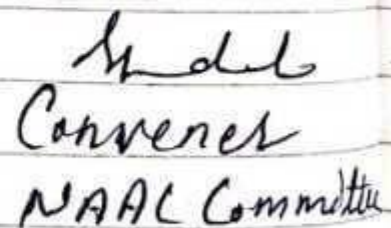 Convener
NAAC Committee